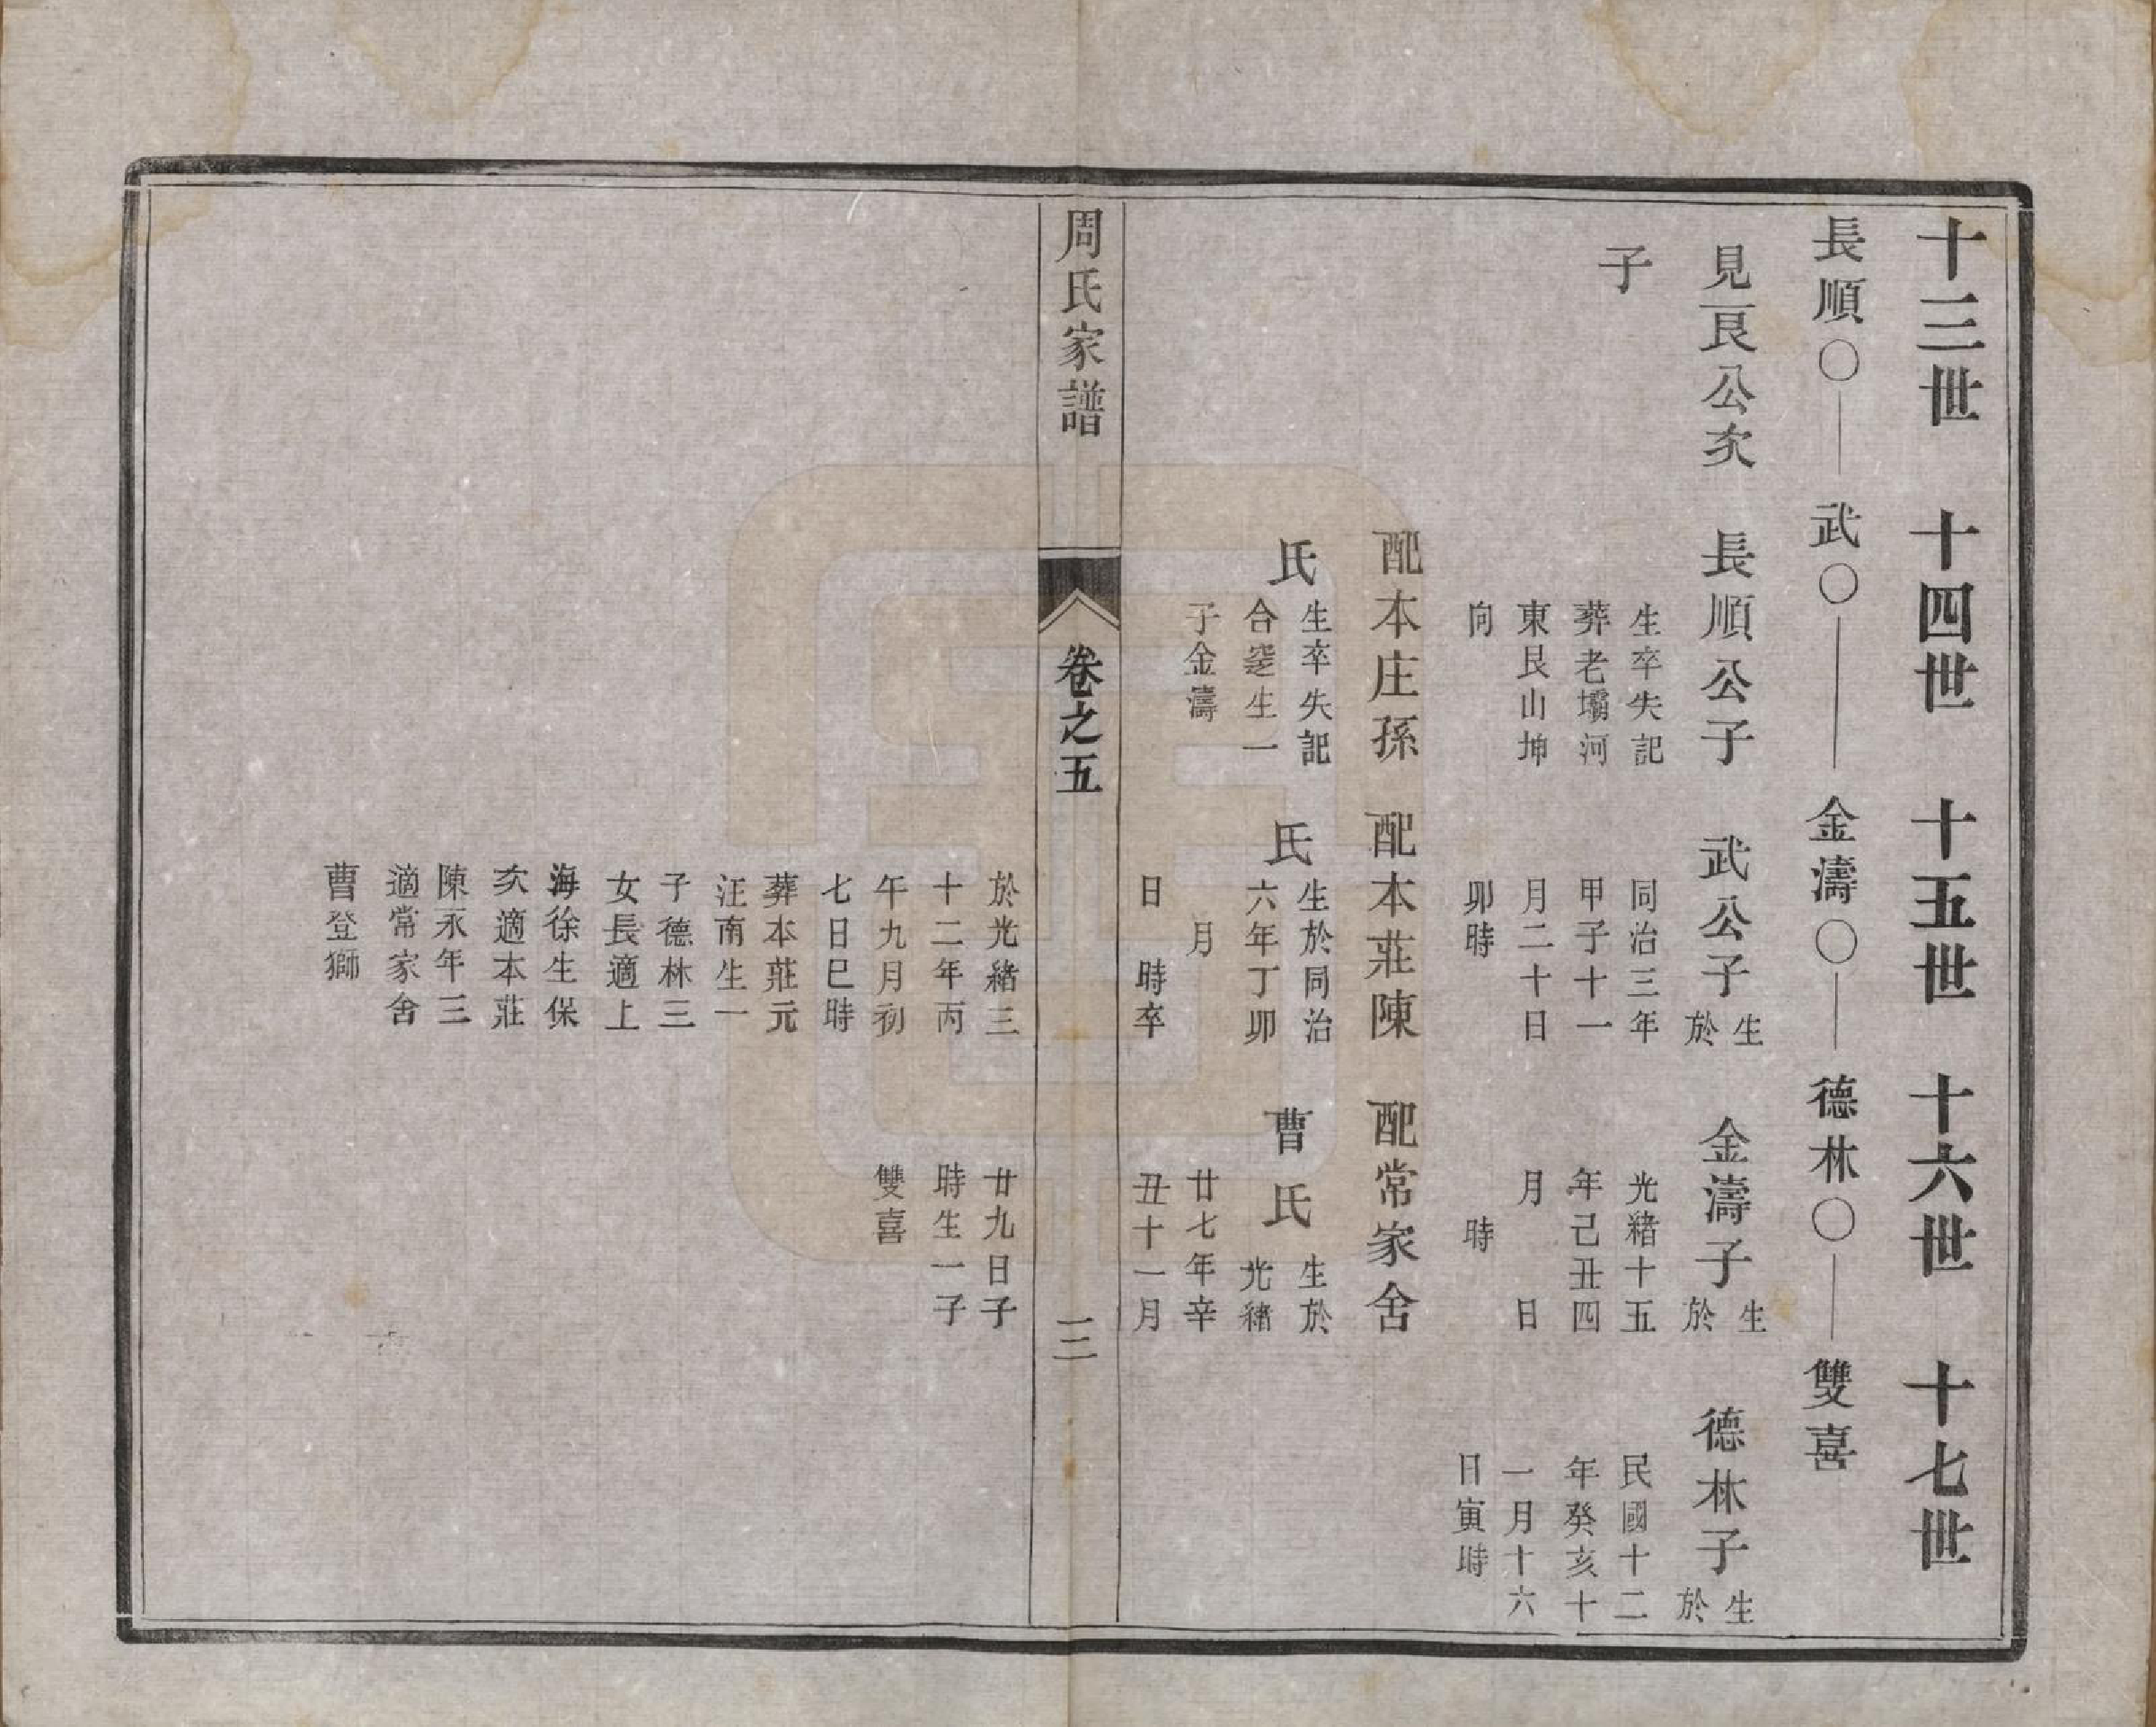 十三世　十四世　十五世　十六世　十七世
長順〇—武〇—金濤〇—德林〇—雙喜
見良公次
子
長順公子
生卒失記
葬老壩河
東艮山坤
向
配本庄孫
氏
生卒失記
合塋生一
子金濤
武公子
生
於
同治三年
甲子十一
月二十日
卯時
配本莊陳
氏
生於同治
六年丁卯
月
日　時卒
於光緒三
十二年丙
午九月初
七日巳時
葬本莊元
汪南生一
子德林三
女長適上
海徐生保
次適本莊
陳永年三
適常家舍
曹登獅
金濤子
生
於
光緒十五
年己丑四
月　　日
時
配常家舍
曹氏
生於
光緒
廿七年辛
丑十一月
廿九日子
時生一子
雙喜
德林子
生
於
民國十二
年癸亥十
一月十六
日寅時
周氏家譜
卷之五
三